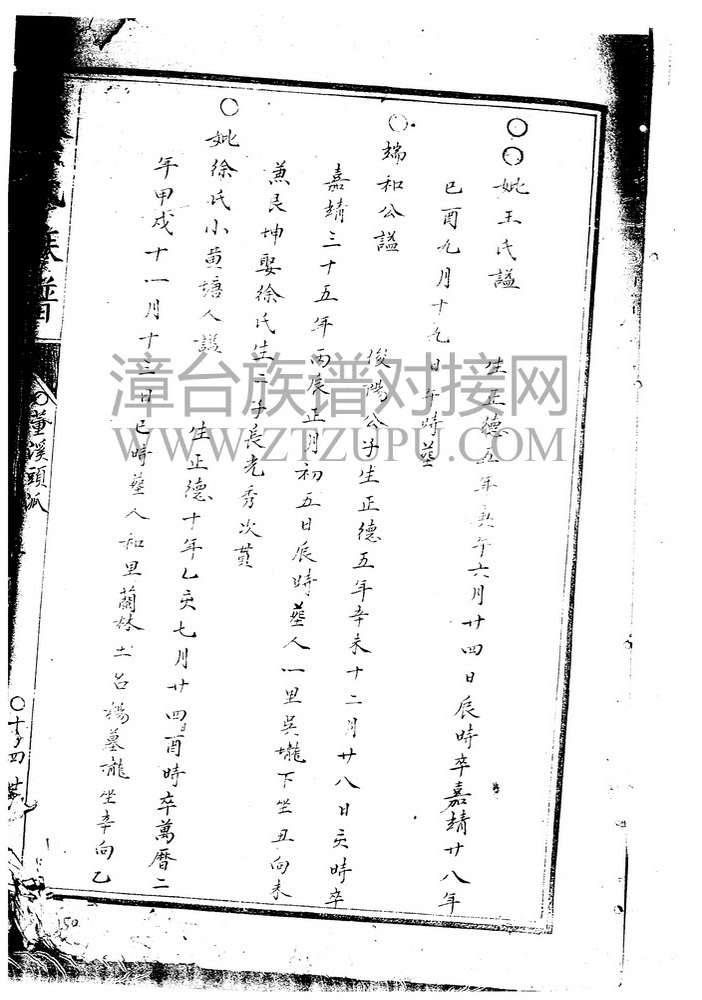 妣王氏謚
生正德五年庚午六月廿四日辰時卒嘉靖廿八年
己酉九月十九日午時葬
端和公謚
俊陽公子生正德五年辛未十二月廿八日亥時卒
嘉靖三十五年丙辰正月初五日辰時葬人一里吳壠下坐丑向未
兼艮坤娶徐氏生二子長光秀次黃
妣徐氏小黄塘人謚
生正德十年乙亥七月廿四酉時卒萬曆二
年甲戌十一月十三日巳時葬人和里蘭林土名楊墓壠坐辛向乙
族譜
董溪頭派
漳台族谱对接网
WWW.ZTZUPU.COM
150